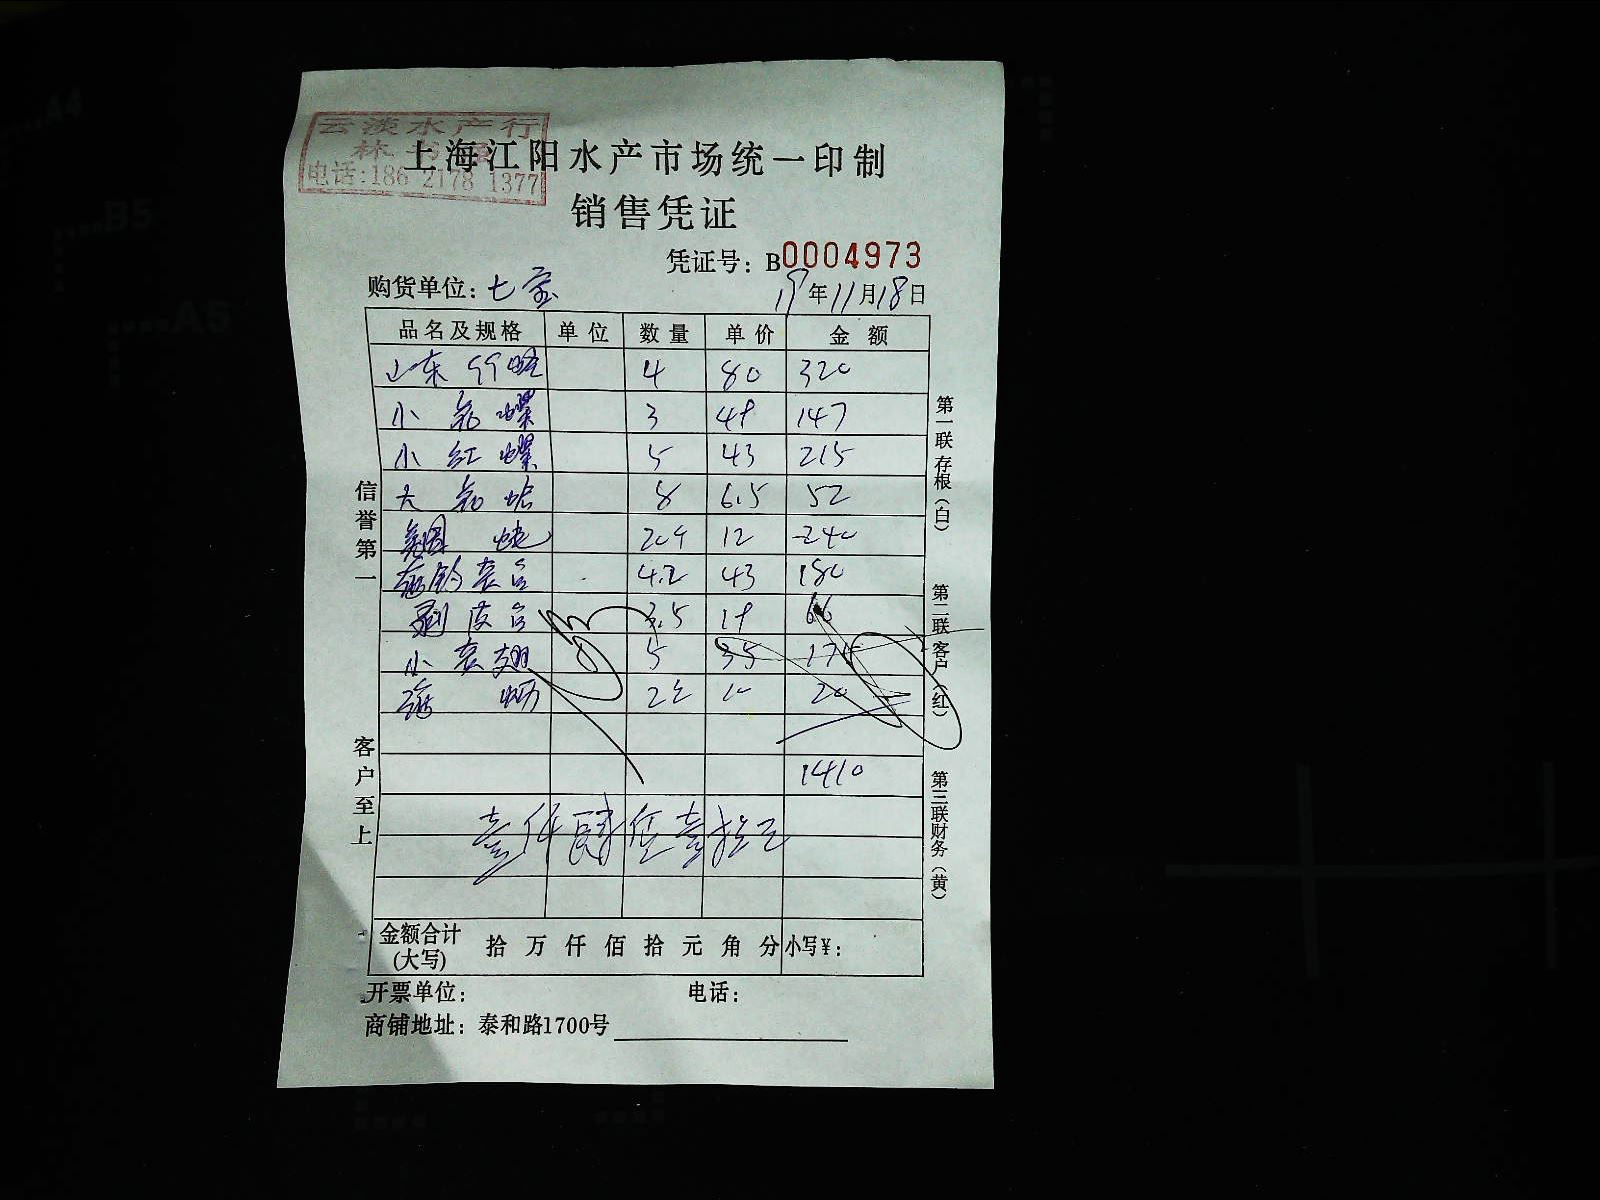 云淡水产行
林
电话:186 2178 1377
上海江阳水产市场统一印制
销售凭证
凭证号：B0004973
购货单位：七宝
19年11月18日
品名及规格 单位 数量 单价 金额
山东 99 4 80 320
小 螺 3 49 147
小 红 螺 5 43 215
大 8 6.5 52
12 240
4.2 43 180
剥皮 3.5 19 66
小 翅 5 35 175
20
1410
壹仟肆佰壹拾元
金额合计(大写) 拾 万 仟 佰 拾 元 角 分 小写¥：
开票单位： 电话：
商铺地址：泰和路1700号
信誉第一
客户至上
第一联存根(白)
第二联客户(红)
第三联财务(黄)